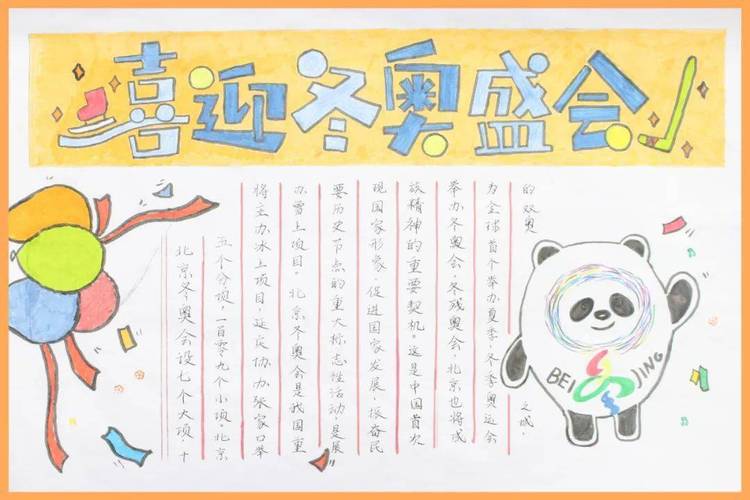 喜迎冬奥盛会
北京冬奥会设七个大项，十
五个分项，一百零九个小项。北京
将主办冰上项目，延庆协办张家口举
办雪上项目。北京冬奥会是我国重
要历史节点的重大标志性活动，是展
现国家形象，促进国家发展，振奋民
族精神的重要契机。这是中国首次
举办冬奥会、冬残奥会，北京也将成
为全球首个举办夏季、冬季奥运会
的双奥之城。
BEIJING